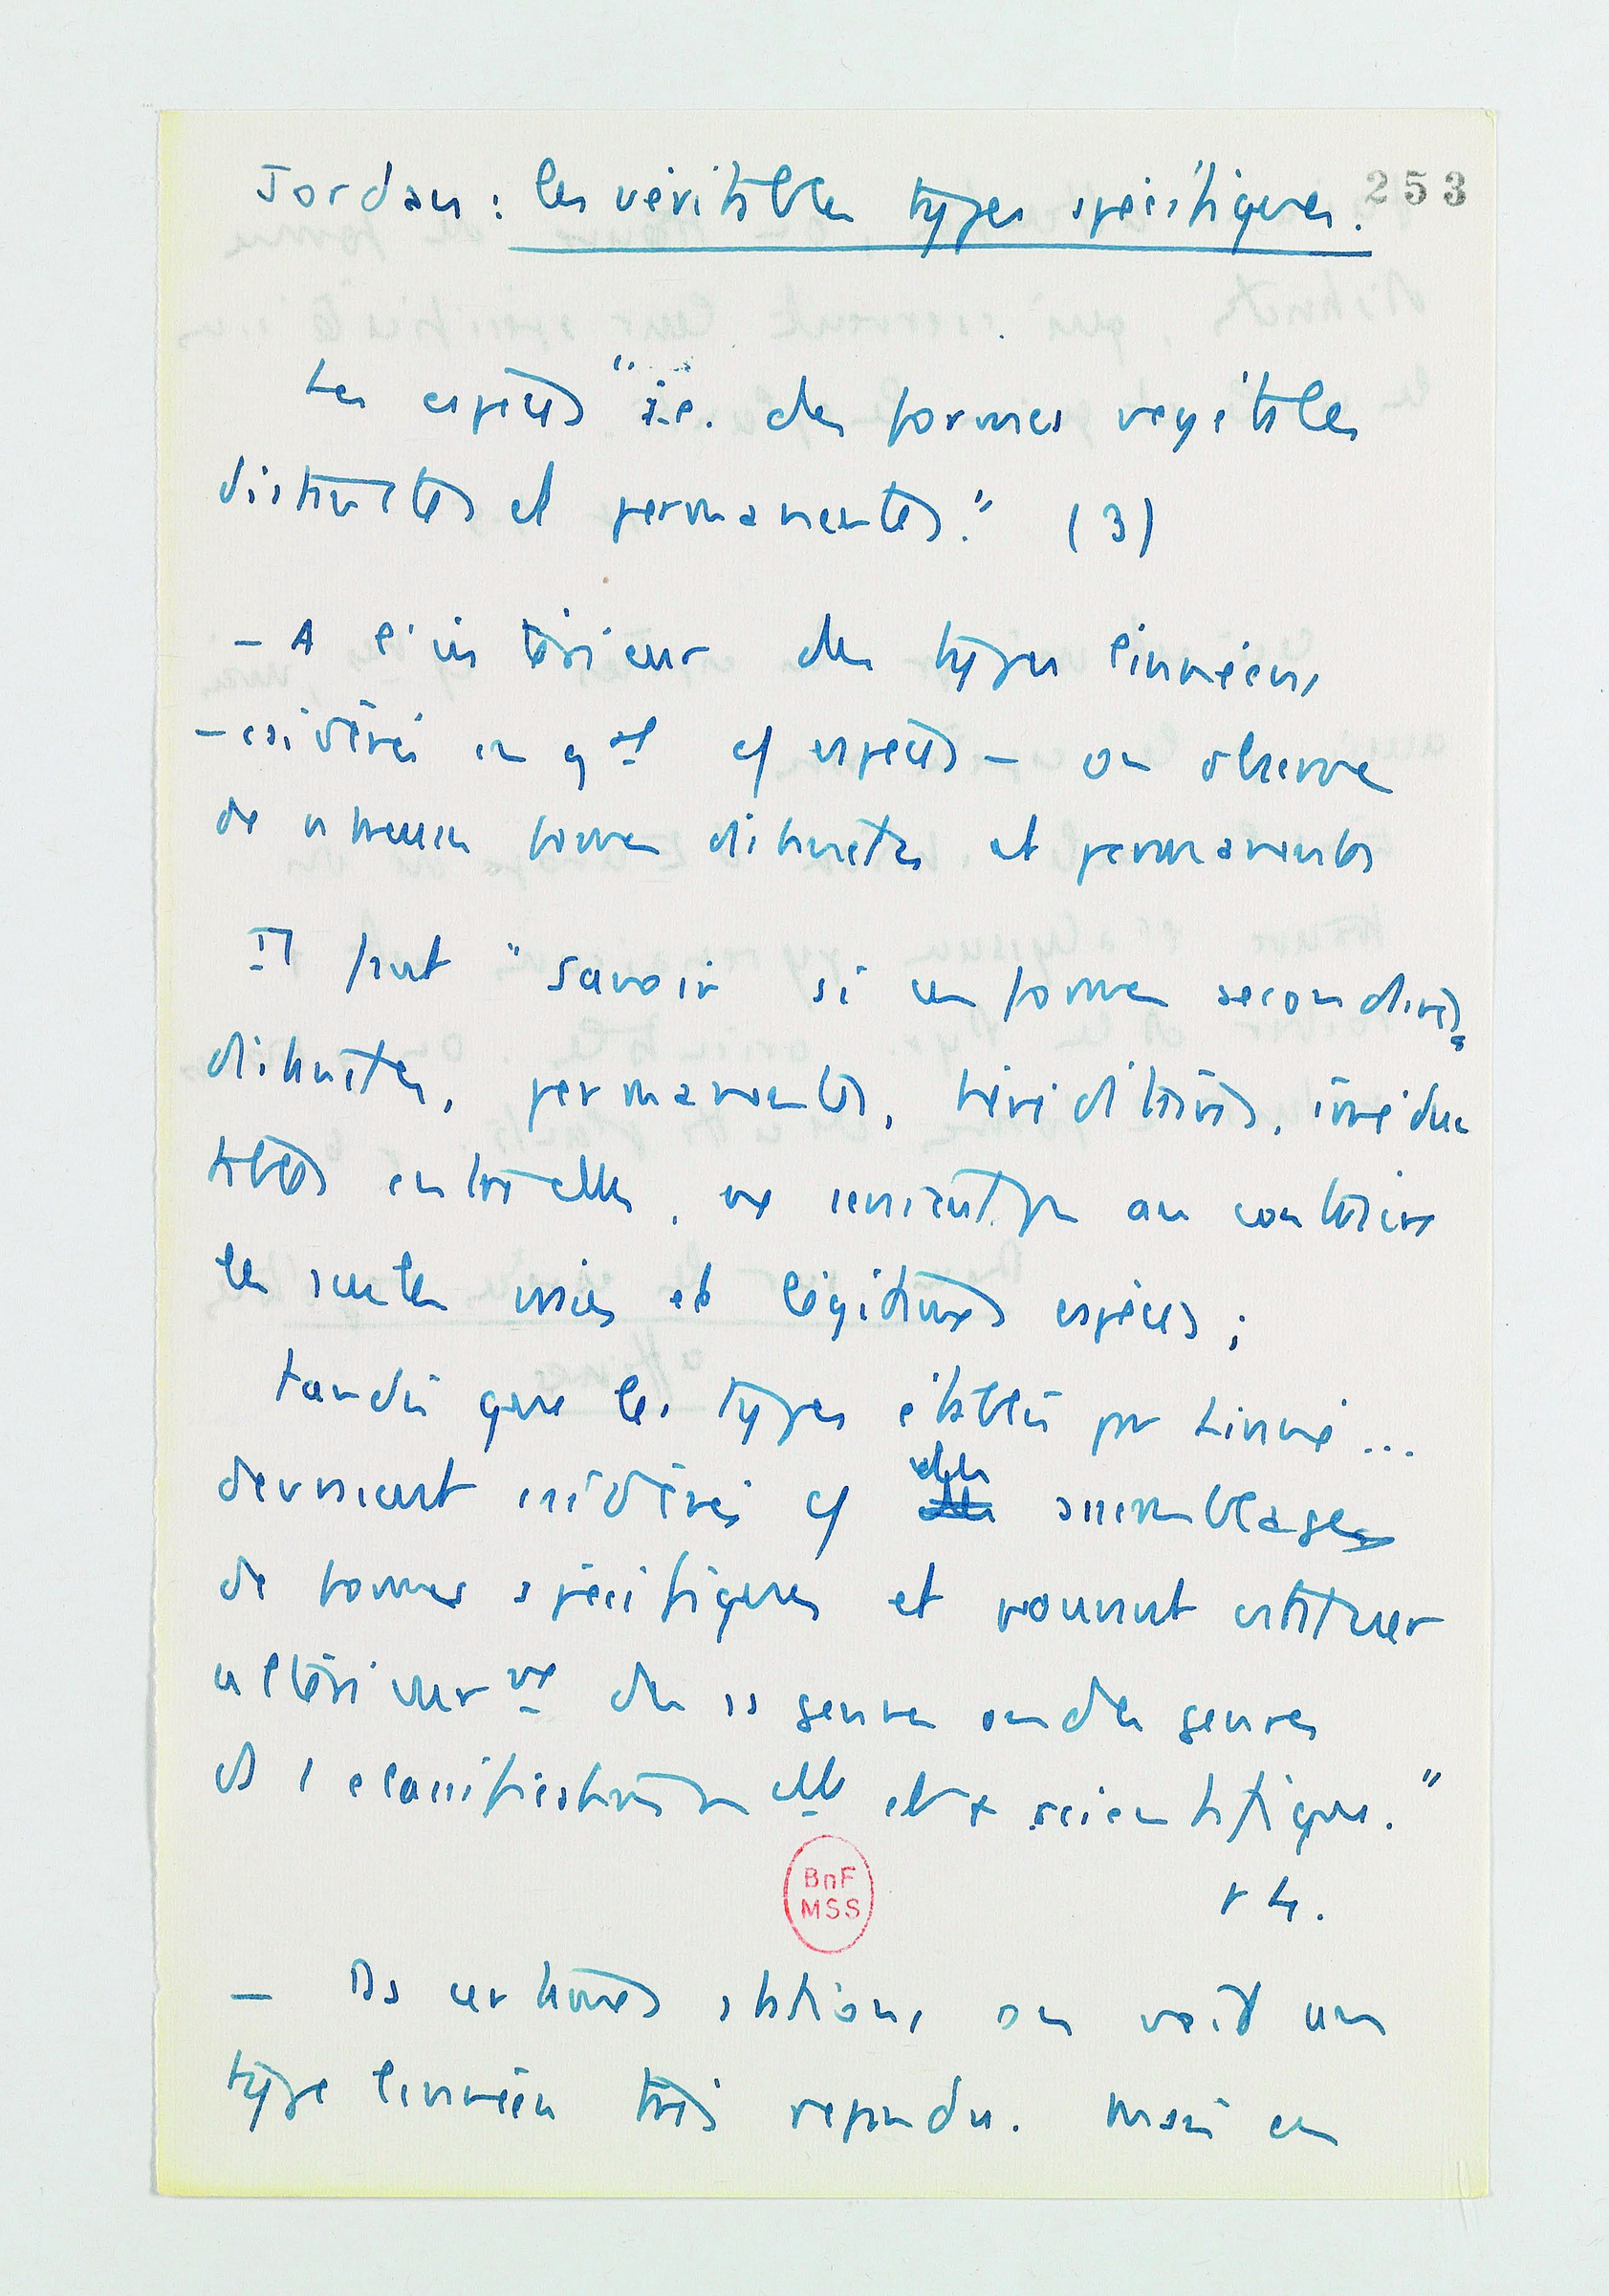 253
Jordan : les véritables types spécifiques.
Les espèces "i.e. des formes végétales
distinctes et permanentes." (3)
— A l'intérieur des types linnéens,
— csidérés en gal cf espèces — on observe
de nbreuses formes distinctes et permanentes
Il faut "savoir si ces formes secondaires
distinctes, permanentes, héréditaires, irréduc
tibles entre elles, ne seraient pas au contraire
les seules vraies et légitimes espèces ;
tandis que les types établis par Linné ...
devraient csidérés cf des assemblages
de formes spécifiques et pourront cstituer
ultérieurmt des ss genres ou des genres
ds 1 classification elle et scientifique."
p 4.
BnF
MSS
— Ds certaines stations on voit un
type linnéen très répandu. Mais en